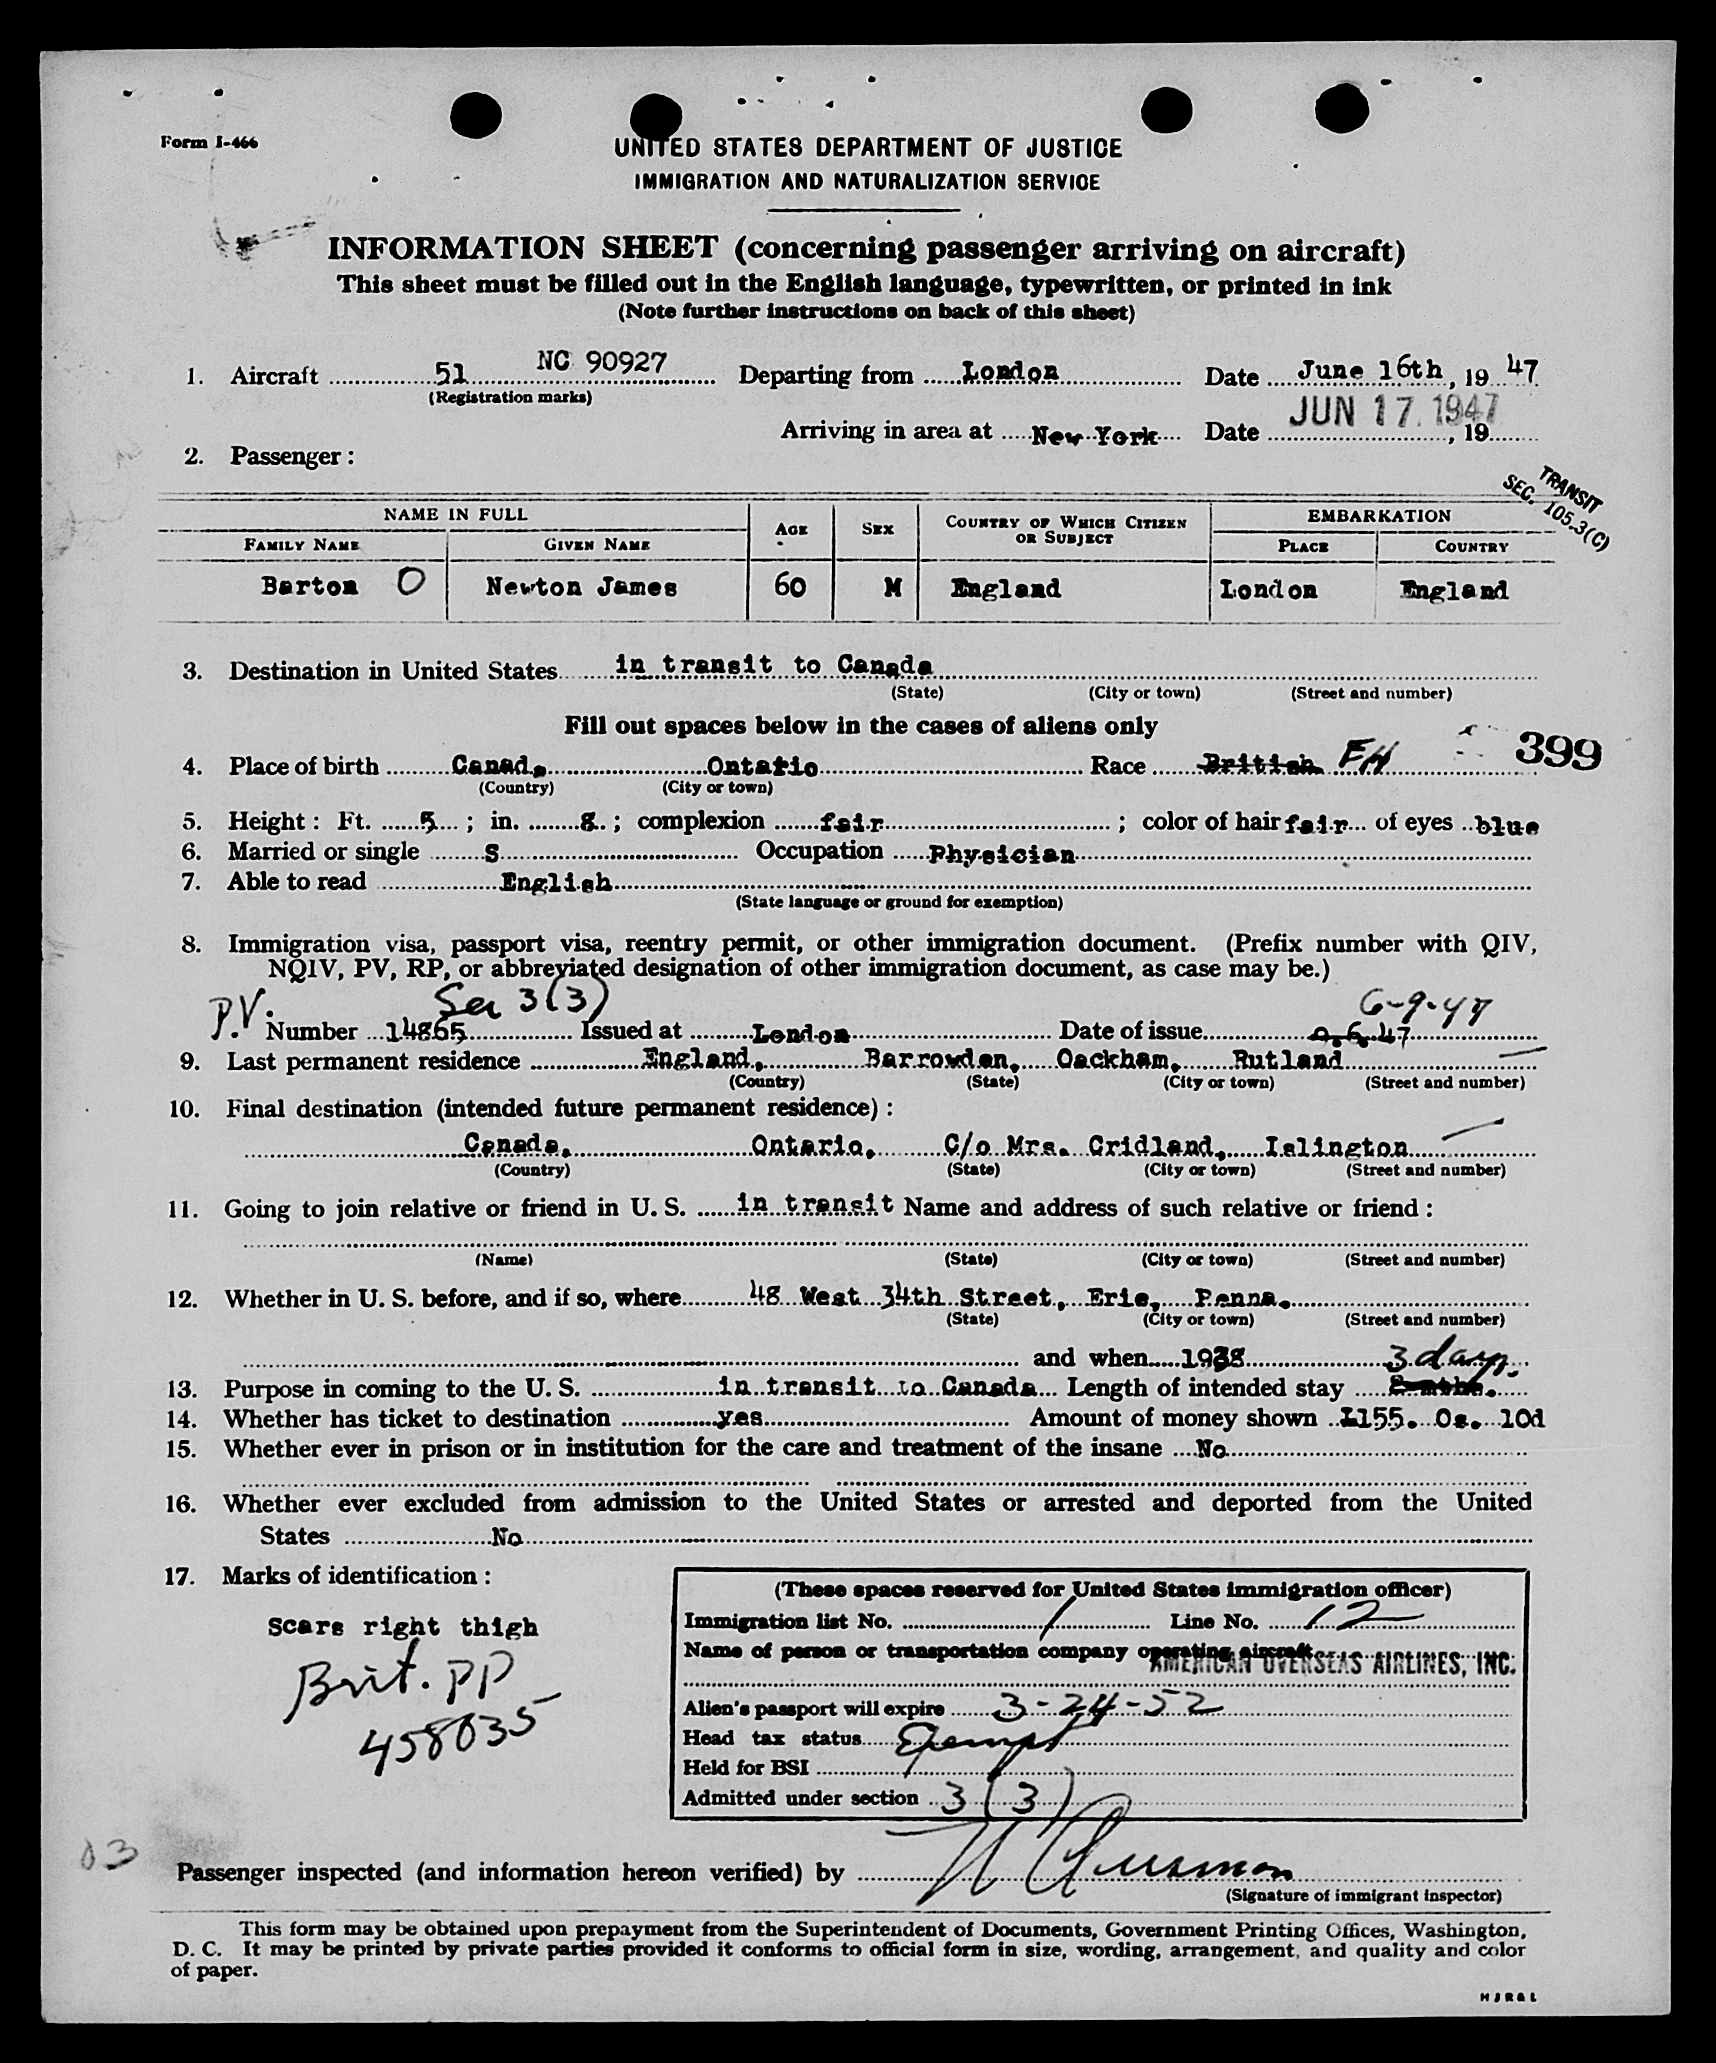 Form I-466
UNITED STATES DEPARTMENT OF JUSTICE
IMMIGRATION AND NATURALIZATION SERVICE
INFORMATION SHEET (concerning passenger arriving on aircraft)
This sheet must be filled out in the English language, typewritten, or printed in ink
(Note further instructions on back of this sheet)
1. Aircraft 51 NC 90927 Departing from London Date June 16th, 19 47
(Registration marks)
Arriving in area at New York Date JUN 17 1947, 19
2. Passenger:
TRANSIT
SEC. 105.3(C)
NAME IN FULL AGE SEX COUNTRY OF WHICH CITIZEN OR SUBJECT EMBARKATION
FAMILY NAME GIVEN NAME PLACE COUNTRY
Barton O Newton James 60 M England London England
3. Destination in United States in transit to Canada
(State) (City or town) (Street and number)
Fill out spaces below in the cases of aliens only
399
4. Place of birth Canada Ontario Race British
(Country) (City or town)
5. Height: Ft. 5; in. 8; complexion fair; color of hair fair of eyes blue
6. Married or single S Occupation Physician
7. Able to read English
(State language or ground for exemption)
8. Immigration visa, passport visa, reentry permit, or other immigration document. (Prefix number with QIV,
NQIV, PV, RP, or abbreviated designation of other immigration document, as case may be.)
P.V. Sec 3(3) 6-9-47
Number 14865 Issued at London Date of issue 9.6.47
9. Last permanent residence England, Barrowden, Oackham, Rutland
(Country) (State) (City or town) (Street and number)
10. Final destination (intended future permanent residence):
Canada, Ontario, C/o Mrs. Cridland, Islington
(Country) (State) (City or town) (Street and number)
11. Going to join relative or friend in U. S. in transit Name and address of such relative or friend:
(Name) (State) (City or town) (Street and number)
12. Whether in U. S. before, and if so, where 48 West 34th Street, Erie, Penna.
(State) (City or town) (Street and number)
and when 1938 3 days.
13. Purpose in coming to the U. S. in transit to Canada Length of intended stay
14. Whether has ticket to destination yes Amount of money shown £155. 0s. 10d
15. Whether ever in prison or in institution for the care and treatment of the insane No
16. Whether ever excluded from admission to the United States or arrested and deported from the United
States No
17. Marks of identification:
Scars right thigh
Brit. PP
458035
(These spaces reserved for United States immigration officer)
Immigration list No. 1 Line No. 12
Name of person or transportation company operating aircraft
AMERICAN OVERSEAS AIRLINES, INC.
Alien's passport will expire 3-24-52
Head tax status Exempt
Held for BSI
Admitted under section 3(3)
03
Passenger inspected (and information hereon verified) by
(Signature of immigrant inspector)
This form may be obtained upon prepayment from the Superintendent of Documents, Government Printing Offices, Washington,
D. C. It may be printed by private parties provided it conforms to official form in size, wording, arrangement, and quality and color
of paper.